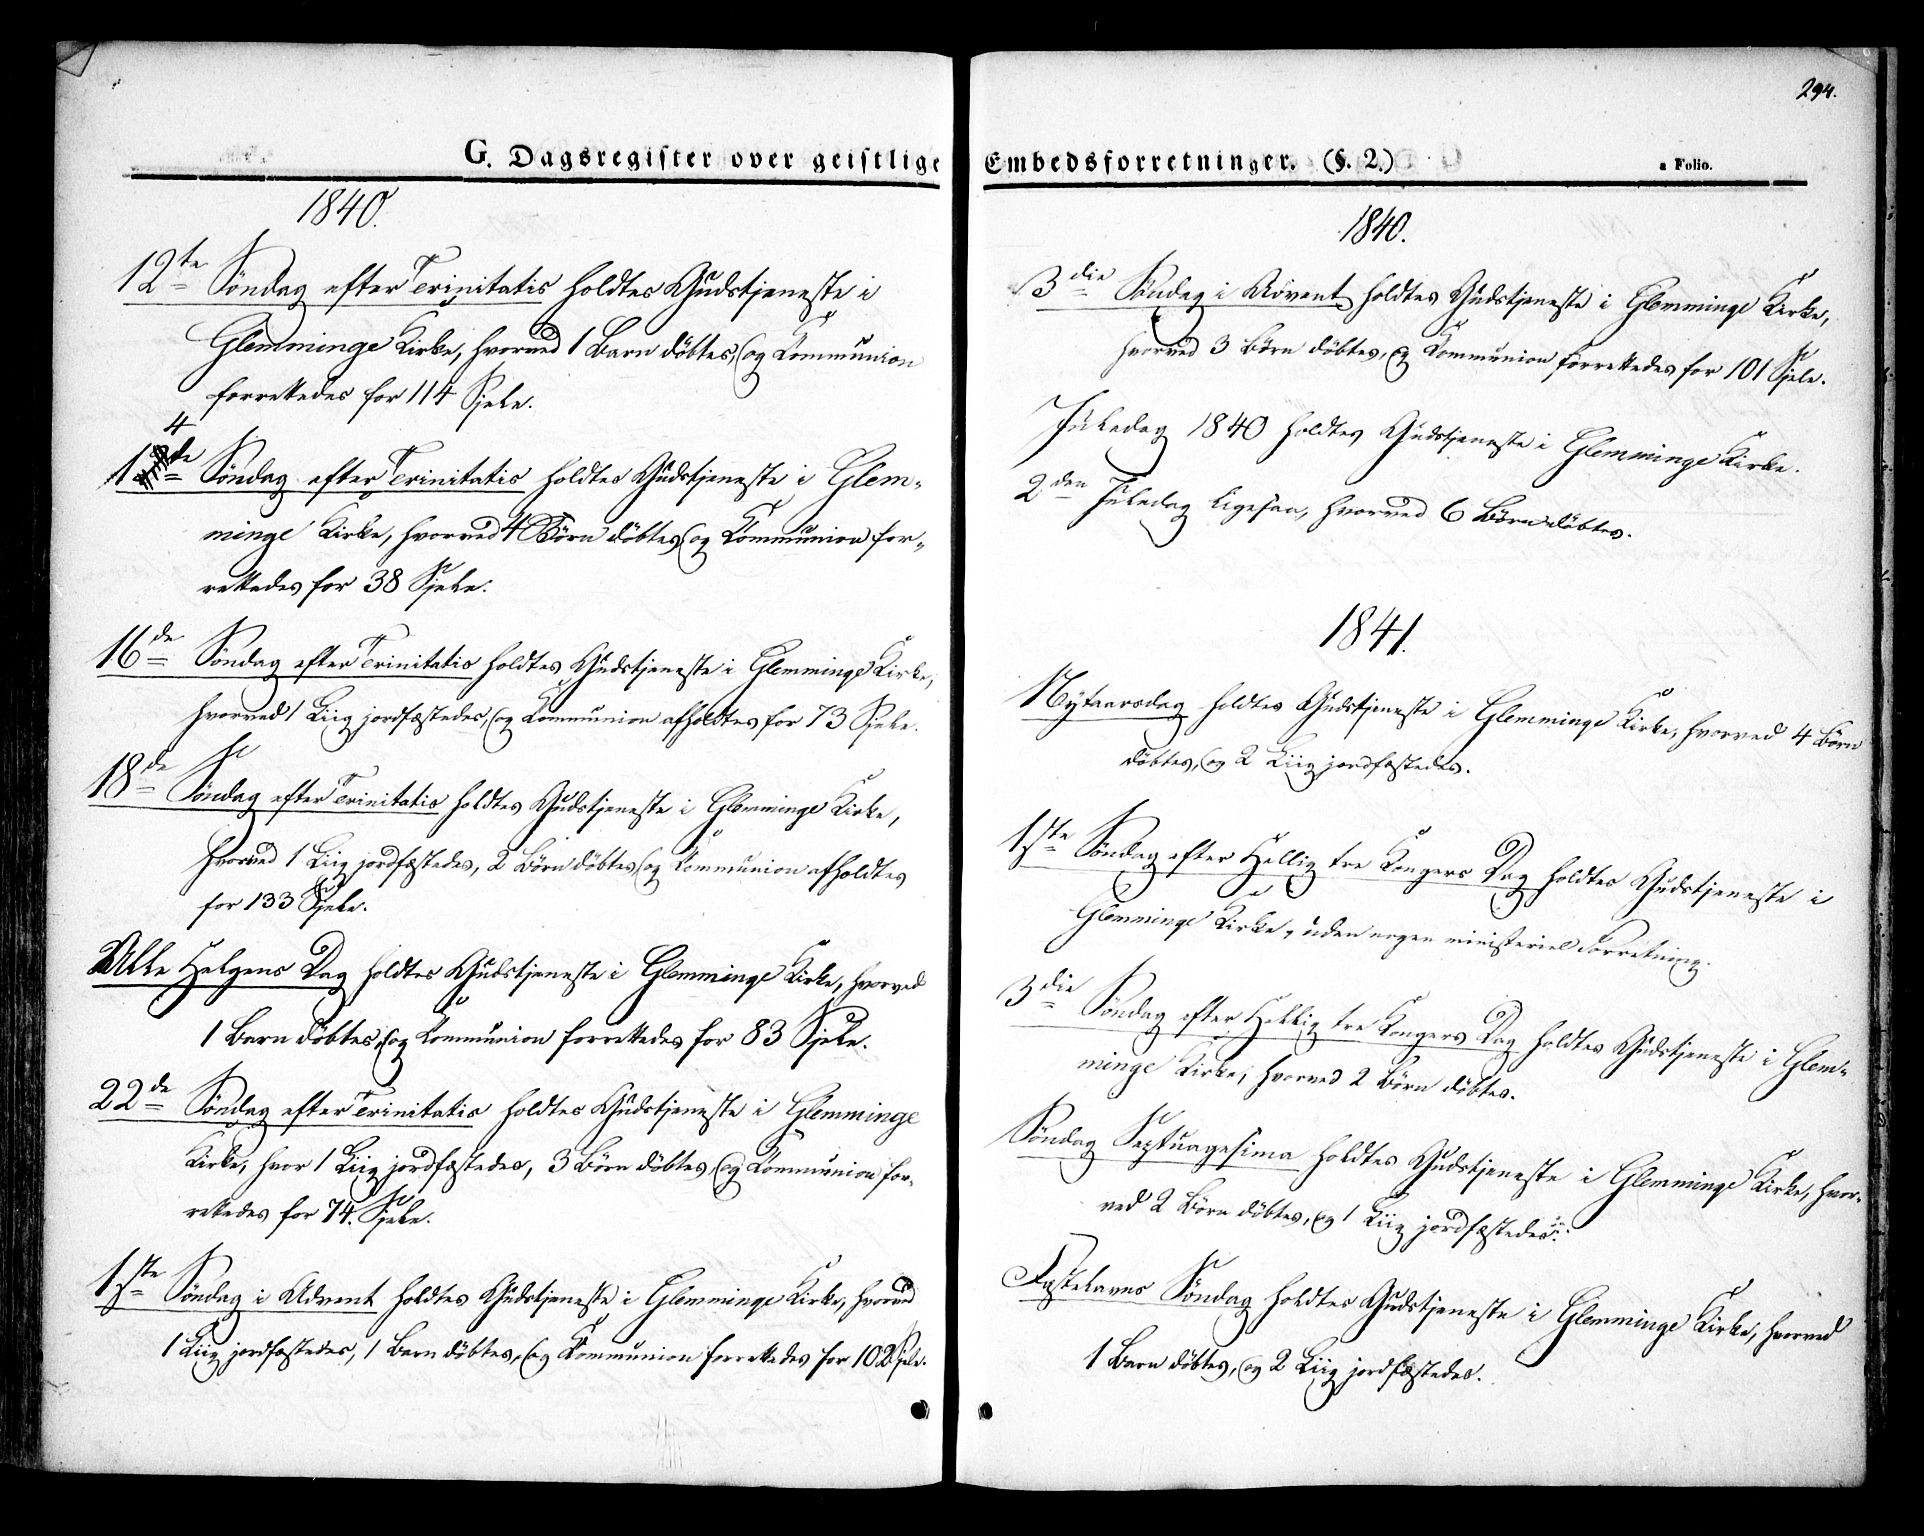 G. Dagsregister over geistlige
1840.
12te Søndag efter Trinitatis holdtes Gudstjeneste i
Glemminge Kirke, hvorved 1 Barn döbtes, og Kommunion
forrettedes for 114 Sjele.
4
1de Søndag efter Trinitatis holdtes Gudstjeneste i Glem-
minge Kirke, hvorved 4 Börn döbtes, og Kommunion for-
rettedes for 38 Sjele.
16de Söndag efter Trinitatis holdtes Gudstjeneste i Glemminge Kirke,
hvorved 1 Liig jordfæstedes, og Kommunion afholdtes for 73 Sjele.
18de Söndag efter Trinitatis holdtes Gudstjeneste i Glemminge Kirke,
hvorved 1 Liig jordfæstedes, 2 Börn döbtes, og Kommunion afholdtes
for 133 Sjele.
Alle Helgens Dag holdtes Gudstjeneste i Glemminge Kirke, hvorved
1 Barn döbtes, og Kommunion forrettedes for 83 Sjele.
22de Söndag efter Trinitatis holdtes Gudstjeneste i Glemminge
Kirke, hvor 1 Liig jordfæstedes, 3 Börn döbtes, og Kommunion for-
rettedes for 74. Sjele.
1ste Söndag i Advent holdtes Gudstjeneste i Glemminge Kirke, hvorved
1 Liig jordfæstedes, 1 Barn döbtes, og Kommunion forrettedes for 102 Sjele.
294.
Embedsforretninger. (§. 2.)
a Folio.
1840.
3die Söndag i Advent holdtes Gudstjeneste i Glemminge Kirke,
hvorved 3 Börn döbtes, og Kommunion forrettedes for 101 Sjele.
Juledag 1840 holdtes Gudstjeneste i Glemminge Kirke.
2den Juledag ligesaa, hvorved 6 Börn döbtes.
1841.
Nytaarsdag holdtes Gudstjeneste i Glemminge Kirke, hvorved 4 Börn
döbtes, og 2 Liig jordfæstedes.
1ste Söndag efter Hellig tre Kongers Dag holdtes Gudstjeneste i
Glemminge Kirke, uden nogen ministeriel Forretning.
3die Söndag efter Hellig tre Kongers Dag holdtes Gudstjeneste i Glem-
minge Kirke, hvorved 2 Börn döbtes.
Söndag Septuagesima holdtes Gudstjeneste i Glemminge Kirke, hvor-
ved 2 Börn döbtes, og 1 Liig jordfæstedes.
Fastelavns Söndag holdtes Gudstjeneste i Glemminge Kirke, hvorved
1 Barn döbtes, og 2 Liig jordfæstedes.